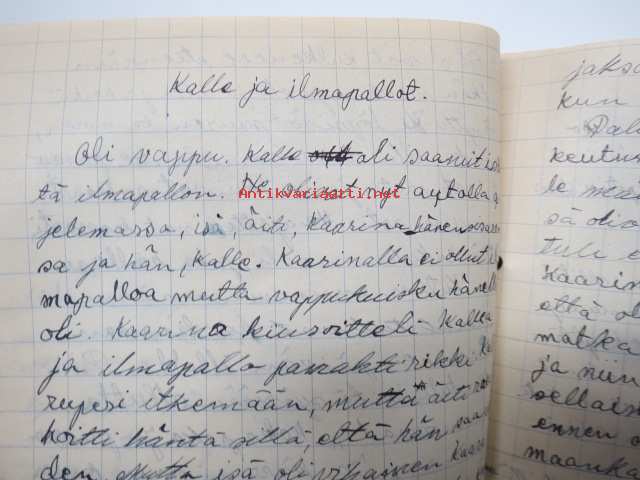 Kalle ja ilmapallot.
Oli vappu. Kalle oli saanut isäl
tä ilmapallon. He olivat nyt autolla a
jelemassa, isä, äiti, Kaarina hänen sisaren
sa ja hän, Kalle. Kaarinalla ei ollut il
mapalloa mutta vappuhuisku hänellä
oli. Kaarina kiusoitteli Kallea
ja ilmapallo pamahti rikki. Ka
rupesi itkemään, mutta äiti
hoitti häntä sillä, että hän saa
den. Mutta isä oli vihainen Kaari
Antikvariaatti.net
jaksa
kun
keutus
le
sä olio
tuli
Kaarin
että ol
matka
ja niin
sellain
ennen
maanka